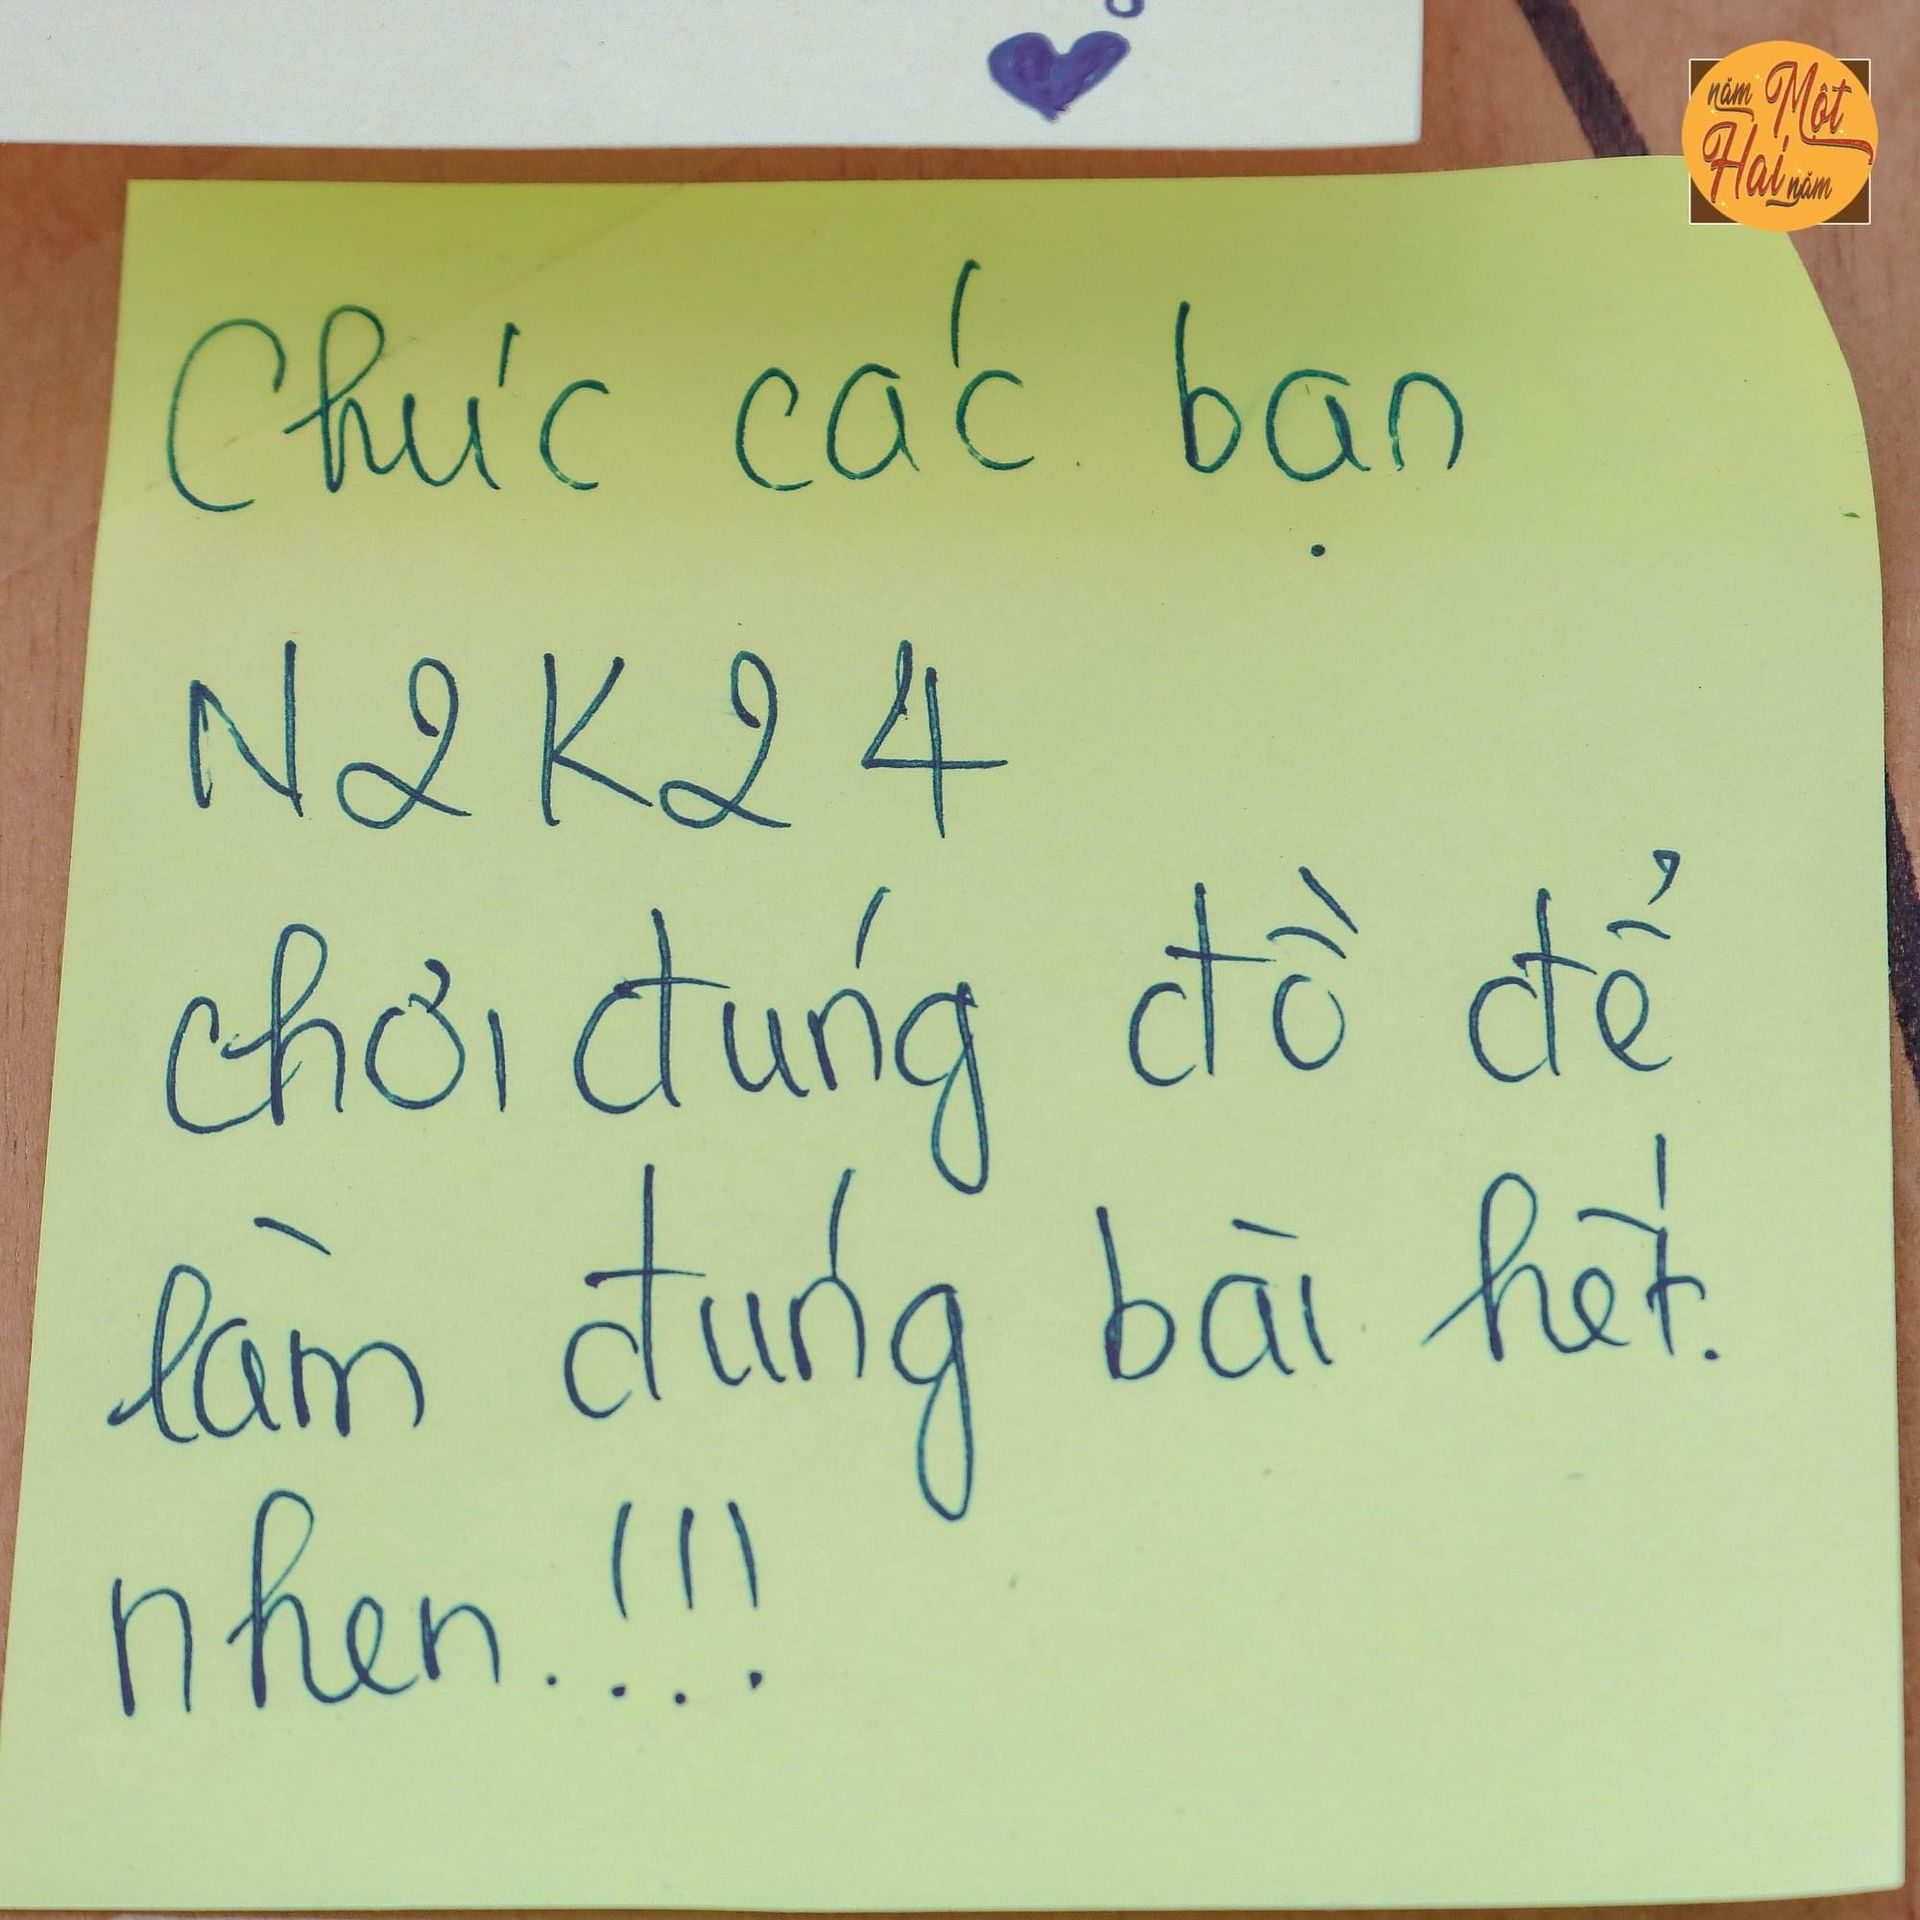 năm Một
Hai năm
Chúc các bạn
N2K24
chơi đúng đồ để
làm đúng bài hết.
nhen.!!!